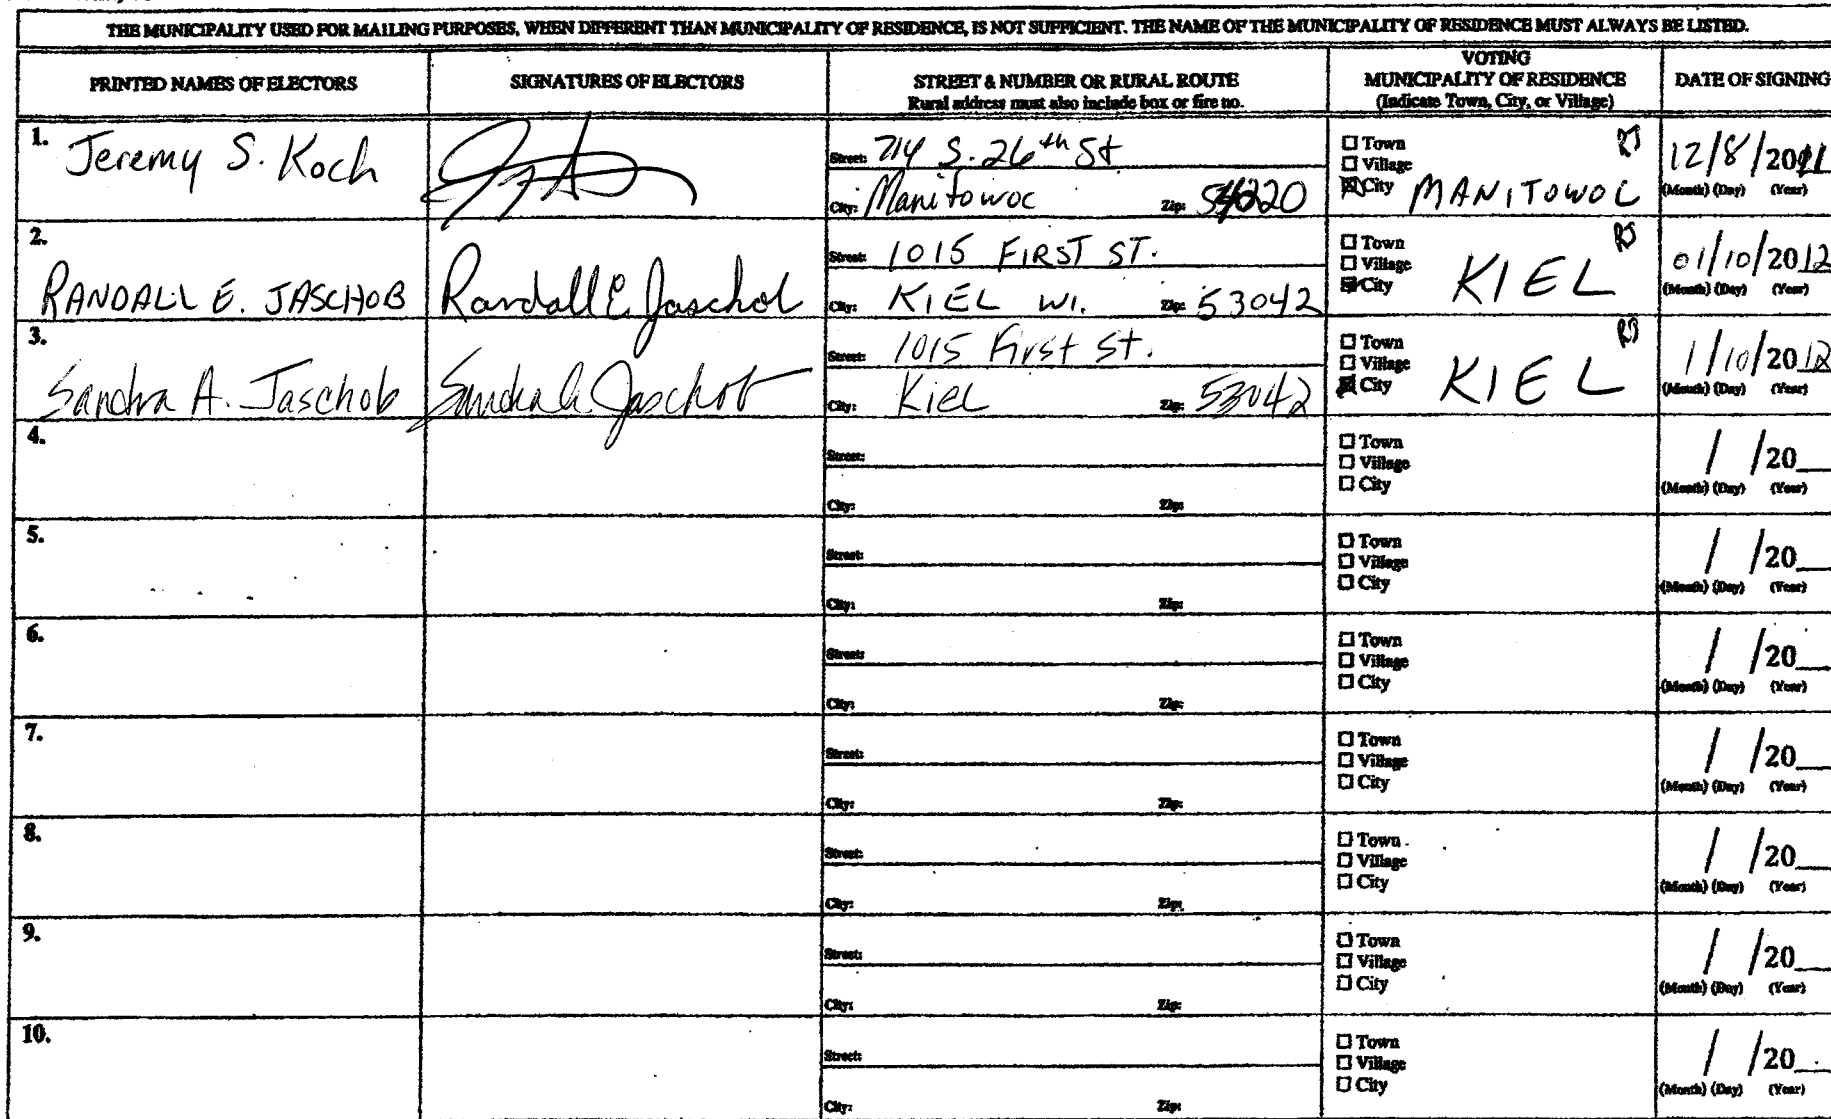 THE MUNICIPALITY USED FOR MAILING PURPOSES, WHEN DIFFERENT THAN MUNICIPALITY OF RESIDENCE, IS NOT SUFFICIENT. THE NAME OF THE MUNICIPALITY OF RESIDENCE MUST ALWAYS BE LISTED.
PRINTED NAMES OF ELECTORS
SIGNATURES OF ELECTORS
STREET & NUMBER OR RURAL ROUTE
Rural address must also include box or fire no.
VOTING
MUNICIPALITY OF RESIDENCE
(Indicate Town, City, or Village)
DATE OF SIGNING
1.
Jeremy S. Koch
Street: 714 S. 26th St
City: Manitowoc Zip: 54220
Town
Village
City MANITOWOC
RJ
12/8/2011
(Month) (Day) (Year)
2.
RANDALL E. JASCHOB
Randall E. Jaschob
Street: 1015 FIRST ST.
City: KIEL WI. Zip: 53042
Town
Village
City KIEL
RJ
01/10/2012
(Month) (Day) (Year)
3.
Sandra A. Jaschob
Sandra A. Jaschob
Street: 1015 First St.
City: Kiel Zip: 53042
Town
Village
City KIEL
RJ
1/10/2012
(Month) (Day) (Year)
4.
Street:
City: Zip:
Town
Village
City
/ /20
(Month) (Day) (Year)
5.
Street:
City: Zip:
Town
Village
City
/ /20
(Month) (Day) (Year)
6.
Street:
City: Zip:
Town
Village
City
/ /20
(Month) (Day) (Year)
7.
Street:
City: Zip:
Town
Village
City
/ /20
(Month) (Day) (Year)
8.
Street:
City: Zip:
Town
Village
City
/ /20
(Month) (Day) (Year)
9.
Street:
City: Zip:
Town
Village
City
/ /20
(Month) (Day) (Year)
10.
Street:
City: Zip:
Town
Village
City
/ /20
(Month) (Day) (Year)